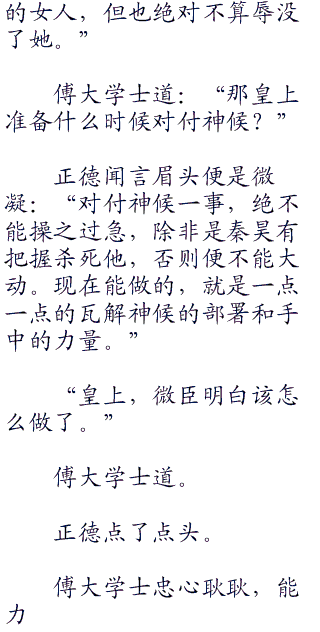 的女人，但也绝对不算辱没
了她。”
傅大学士道：“那皇上
准备什么时候对付神候？”
正德闻言眉头便是微
凝：“对付神候一事，绝不
能操之过急，除非是秦昊有
把握杀死他，否则便不能大
动。现在能做的，就是一点
一点的瓦解神候的部署和手
中的力量。”
“皇上，微臣明白该怎
么做了。”
傅大学士道。
正德点了点头。
傅大学士忠心耿耿，能
力